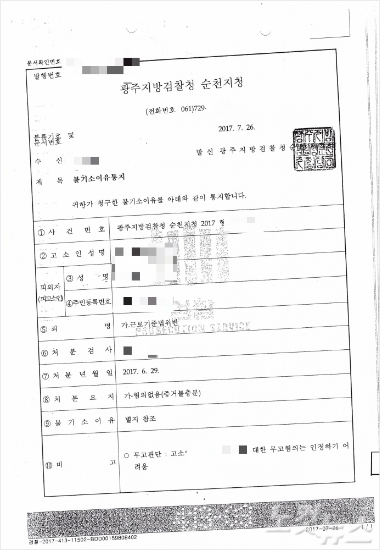 문서확인번호
발행번호
광주지방검찰청 순천지청
(전화번호 061)729-
등록기호 및
문서번호
2017. 7. 26.
수 신
발 신 광주지방검찰청순
제 목 불기소이유통지
귀하가 청구한 불기소이유를 아래와 같이 통지합니다.
① 사 건 번 호 광주지방검찰청 순천지청 2017 형
② 고 소 인 성 명
피의자
(피고소인)
③ 성 명
④ 주민등록번호
⑤ 죄 명 가.근로기준법위반
PROSECUTION SERVICE
⑥ 처 분 검 사
⑦ 처 분 년 월 일 2017. 6. 29.
⑧ 처 분 요 지 가-혐의없음(증거불충분)
⑨ 불 기 소 이 유 별지 참조
⑩ 비 고 ○ 무고판단 : 고소 대한 무고혐의는 인정하기 어
려움
2017-07-26